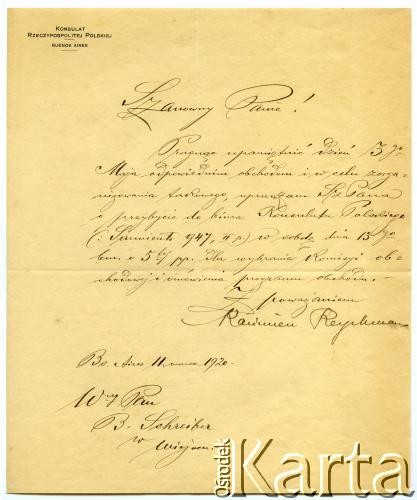 KONSULAT
RZECZYPOSPOLITEJ POLSKIEJ
BUENOS AIRES
Szanowny Panie!
Pragnąc upamiętnić dzień 3 go
Maja odpowiednim obchodem i w celu zorga-
nizowania takowego, upraszam Sz. Pana
o przybycie do biura Konsulatu Polskiego
(: Sarmiento 947, II p) w sobotę dnia 13 go
b.m. o 5 tej pp. dla wybrania Komisji ob-
chodowej i omówienia programu obchodu.-
Z poważaniem
Kazimierz Reychman
Bs. Aires 11 marca 1920.
Wny Pan
B. Schreiber
w miejscu.
ośrodek Karta